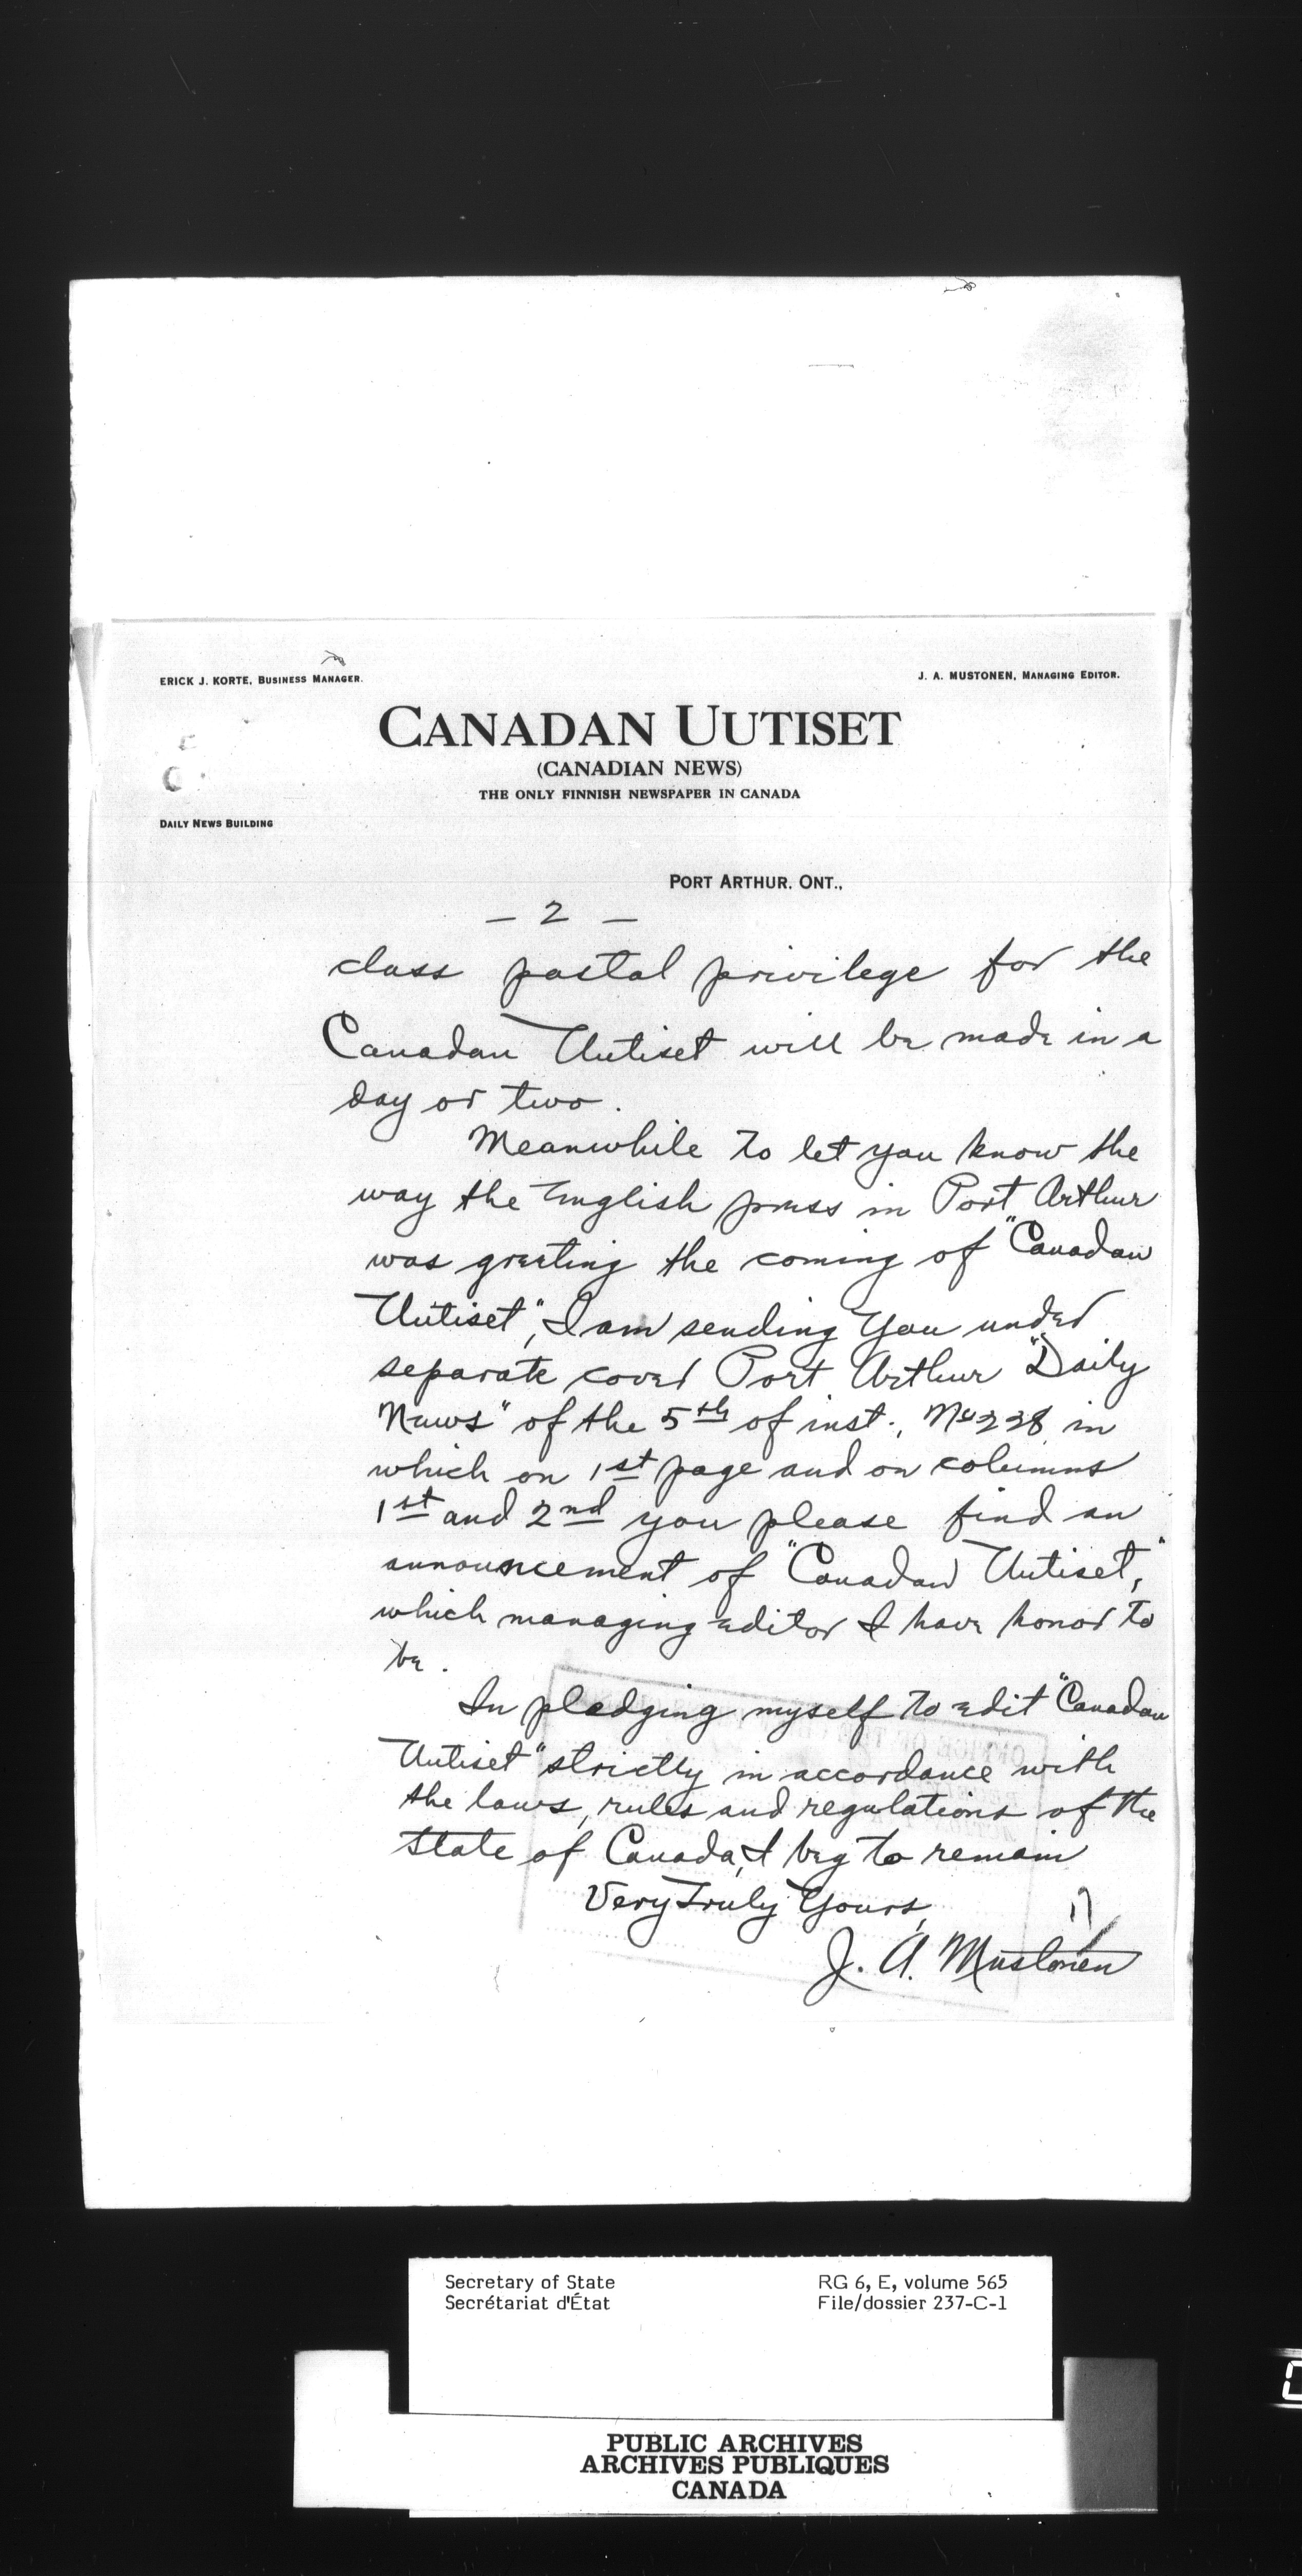 ERICK J. KORTE, BUSINESS MANAGER.
J. A. MUSTONEN, MANAGING EDITOR.
CANADAN UUTISET
(CANADIAN NEWS)
THE ONLY FINNISH NEWSPAPER IN CANADA
DAILY NEWS BUILDING
PORT ARTHUR, ONT.,
– 2 –
class postal privilege for the
Canadan Uutiset will be made in a
day or two.
Meanwhile to let you know the
way the English press in Port Arthur
was greeting the coming of "Canadan
Uutiset", I am sending you under
separate cover Port Arthur "Daily
News" of the 5th of inst., No 228 in
which on 1st page and on columns
1st and 2nd you please find an
announcement of "Canadan Uutiset,"
which managing editor I have honor to
be.
In pledging myself to edit "Canadan
Uutiset" strictly in accordance with
the laws, rules and regulations of the
state of Canada, I beg to remain
Very Truly Yours,
J. A. Mustonen
Secretary of State
Secrétariat d'État
RG 6, E, volume 565
File/dossier 237-C-1
PUBLIC ARCHIVES
ARCHIVES PUBLIQUES
CANADA